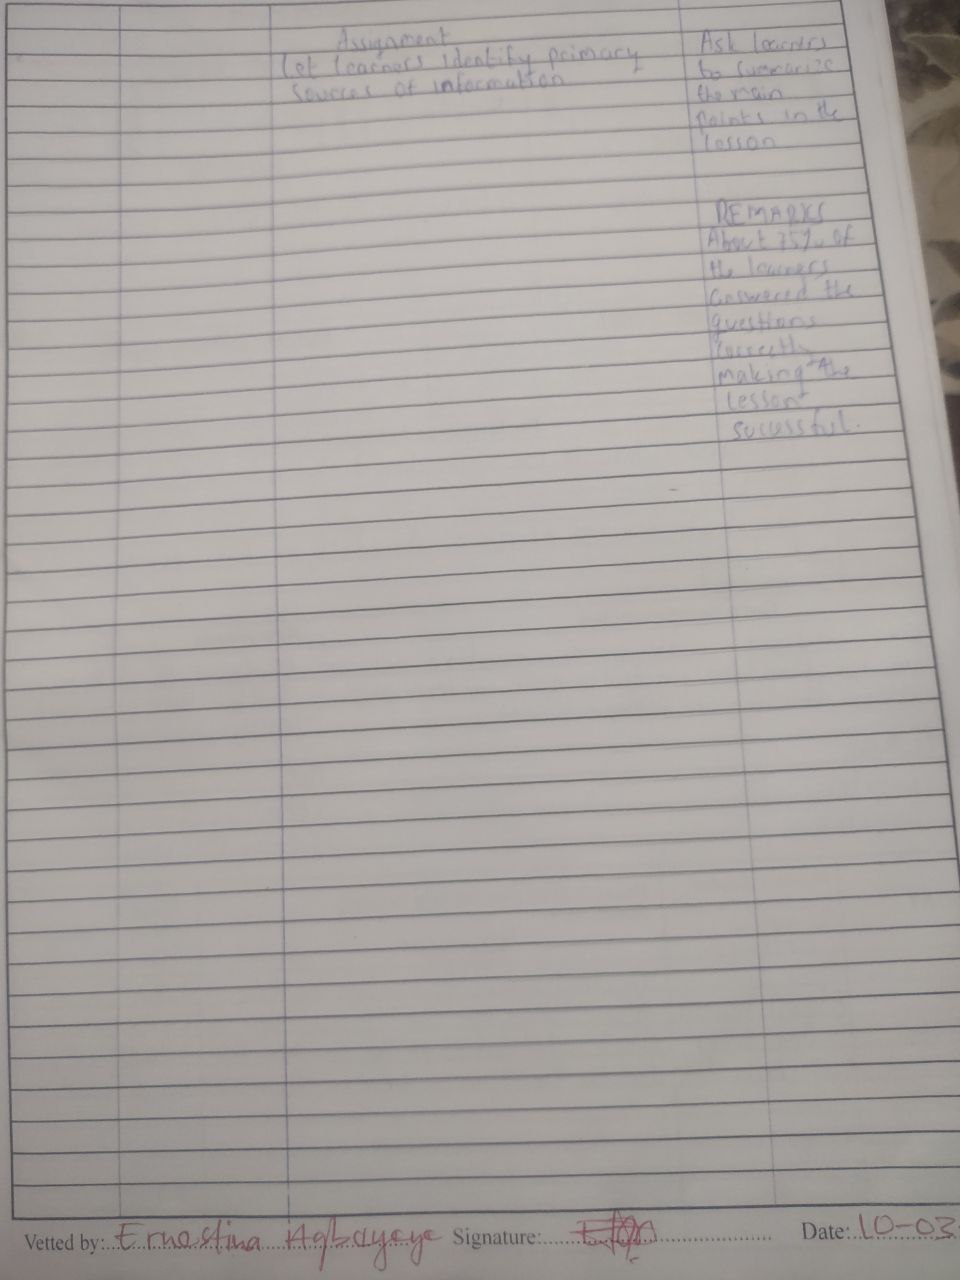 Assignment
Let learners identify primary
sources of information
Ask learners
to summarize
the main
points in the
lesson
REMARKS
About 75% of
the learners
answered the
questions
correctly
making the
lesson
sucessful.
Vetted by: Ernestina Agbayeye Signature: Date: 10-03